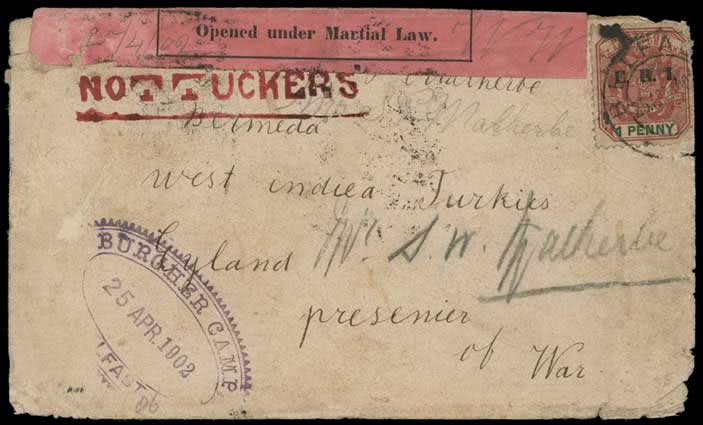 Opened under Martial Law.
NOT TUCKERS
E. R. I.
1 PENNY
Malherbe
Bermeda
west indiea Turkies
Eyland Mr. S. W. Malherbe
presenier
of War
BURGHER CAMP
25 APR. 1902
LFAST
86